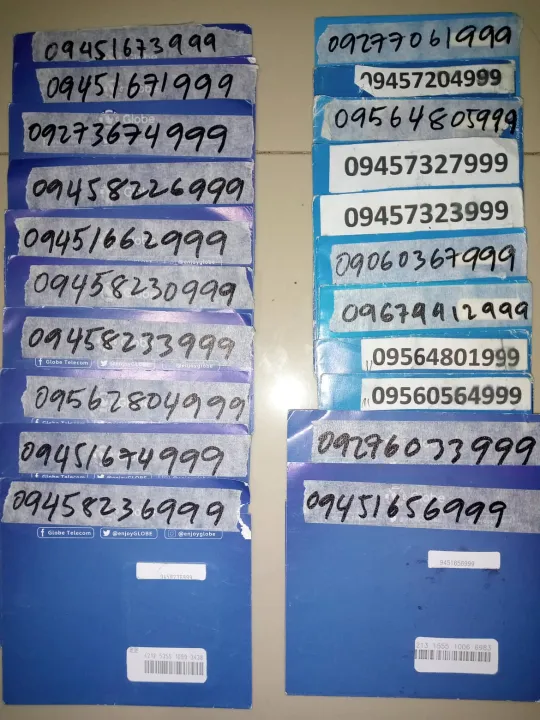 09451673999
09451671999
Globe
09273674999
09458226999
09451662999
09458230999
09458233999
Globe Telecom @enjoyGLOBE @enjoyglobe
09562804999
09451674999
09458236999
Globe Telecom @enjoyGLOBE @enjoyglobe
09277061999
09457204999
09564805999
09457327999
09457323999
09060367999
09679912999
09564801999
09560564999
09276033999
09451656999
9451656999